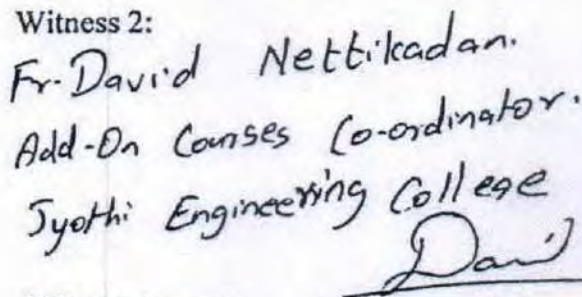 Witness 2:
Fr. David Nettikadan.
Add-On Courses Co-ordinator.
Jyothi Engineering College
David